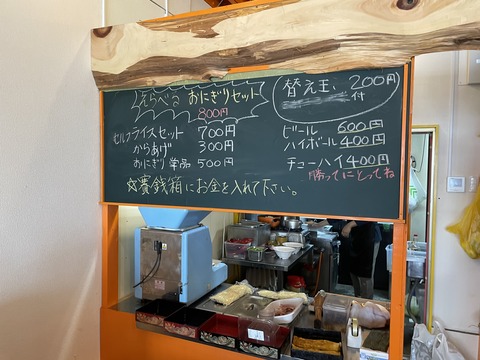 えらべる おにぎりセット
800円
セルフライスセット 700円
からあげ 300円
おにぎり 単品 500円
☆賽銭箱にお金を入れて下さい。
替え玉、200円
付
ビール 600円
ハイボール 400円
チューハイ 400円
勝ってにとってね